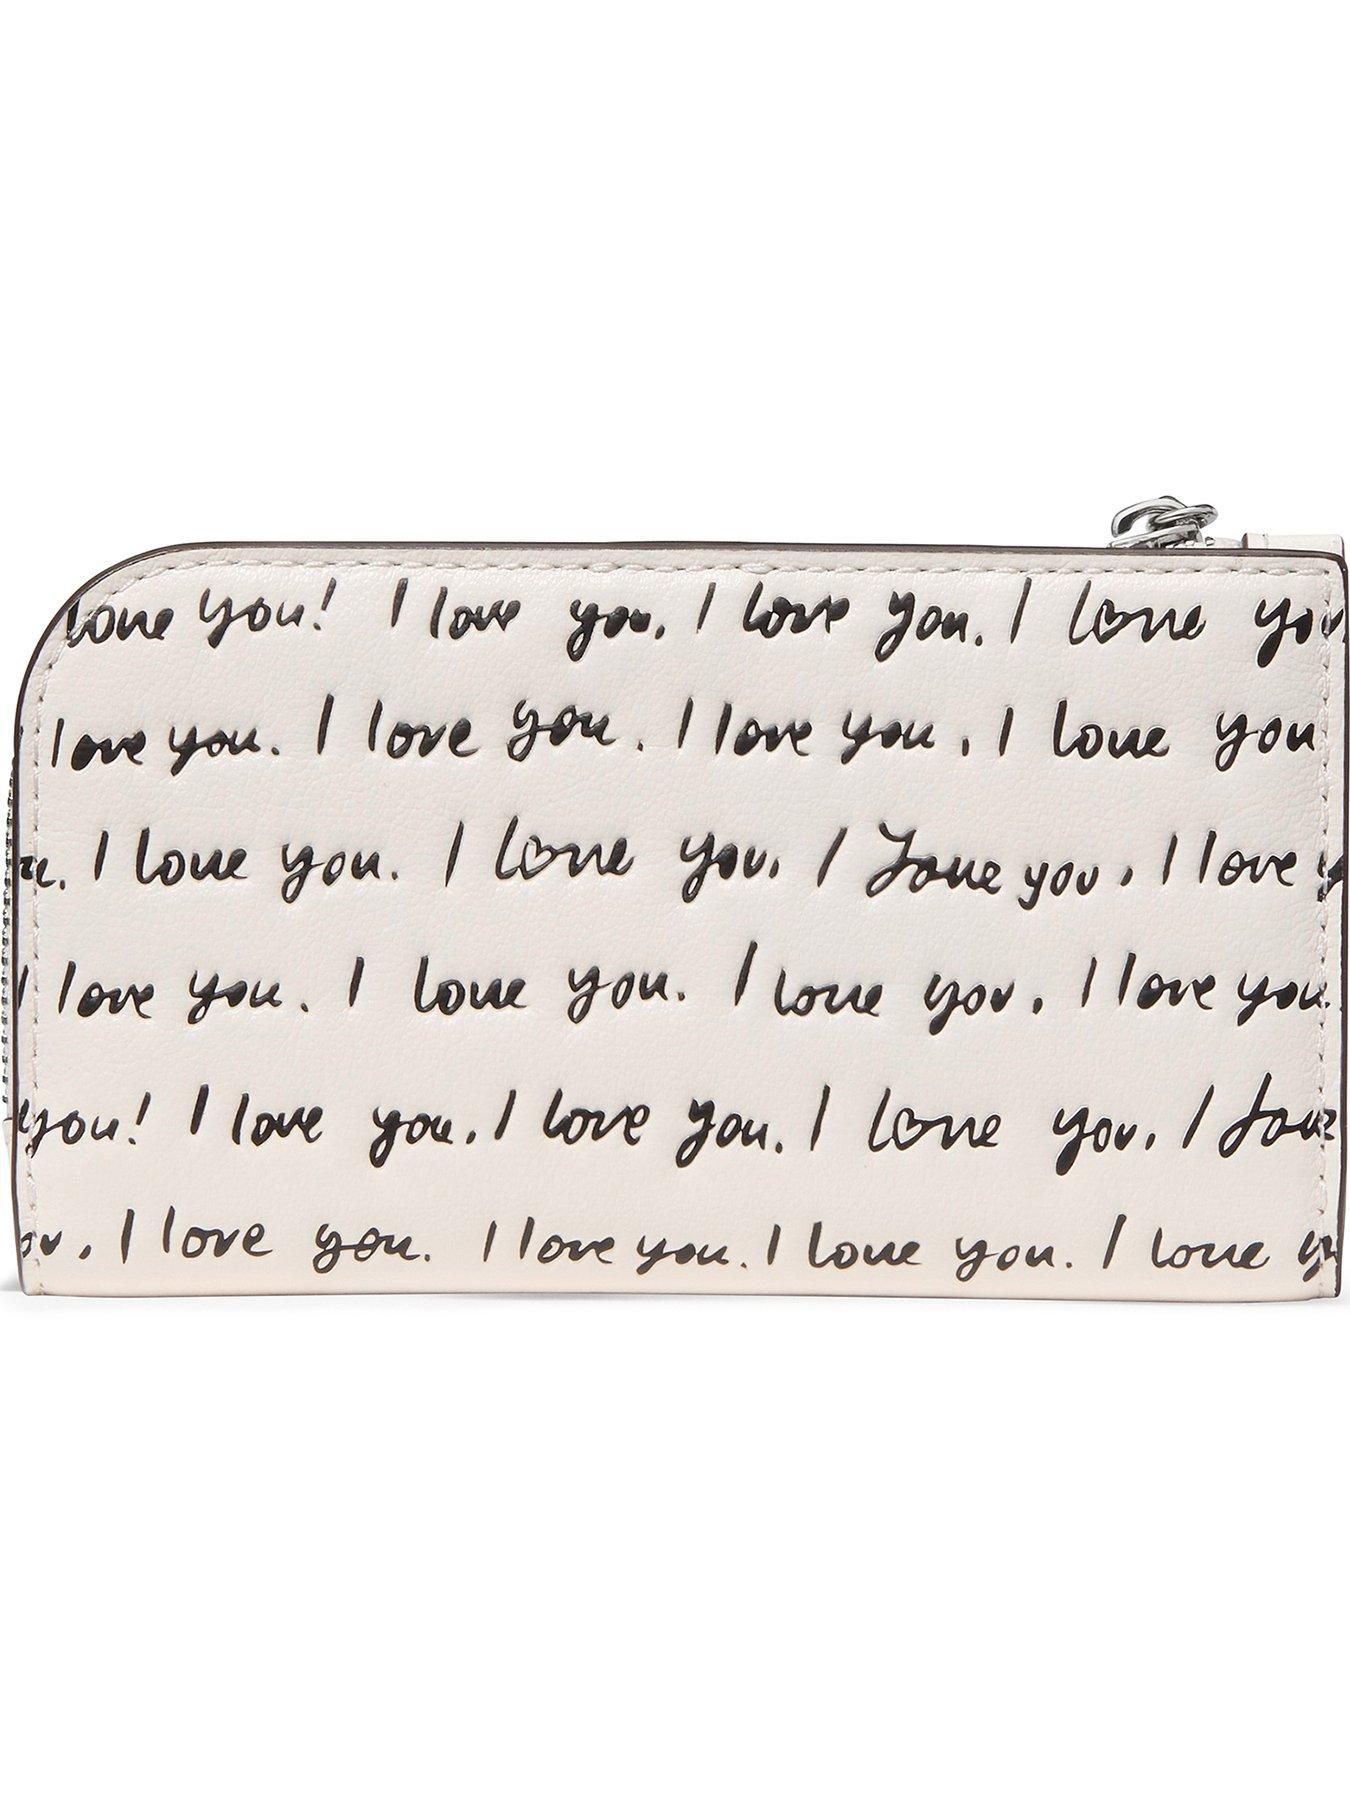 love you! I love you. I love you. I love you
I love you. I love you. I love you. I love you
I love you. I love you. I love you. I love
I love you. I love you. I love you. I love you.
you! I love you. I love you. I love you. I love
I love you. I love you. I love you. I love